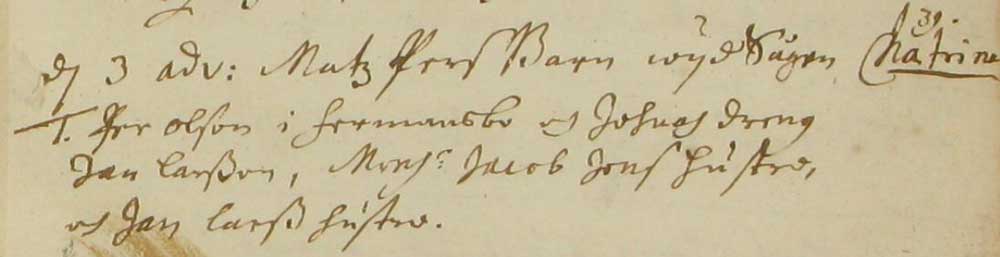 39.
d 3 adv: Matz Pers Barn wijd Sagen Katrina
T. Per olson i Hermansbo och Johans dreng
Jan larßon, Monsr Jacob Jons hustro,
och Jan larß hustro.